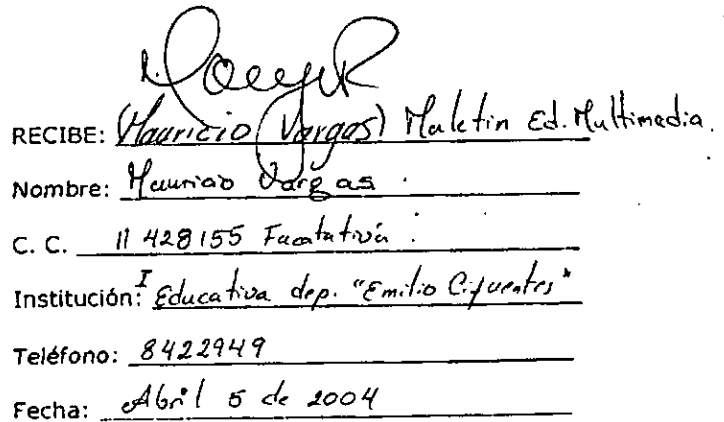 RECIBE: (Mauricio Vargas) Maletin Ed. Multimedia.
Nombre: Mauricio Vargas.
C. C. 11 428155 Facatativá.
Institución: I Educativa dep. "Emilio Cifuentes"
Teléfono: 8422949
Fecha: Abril 5 de 2004